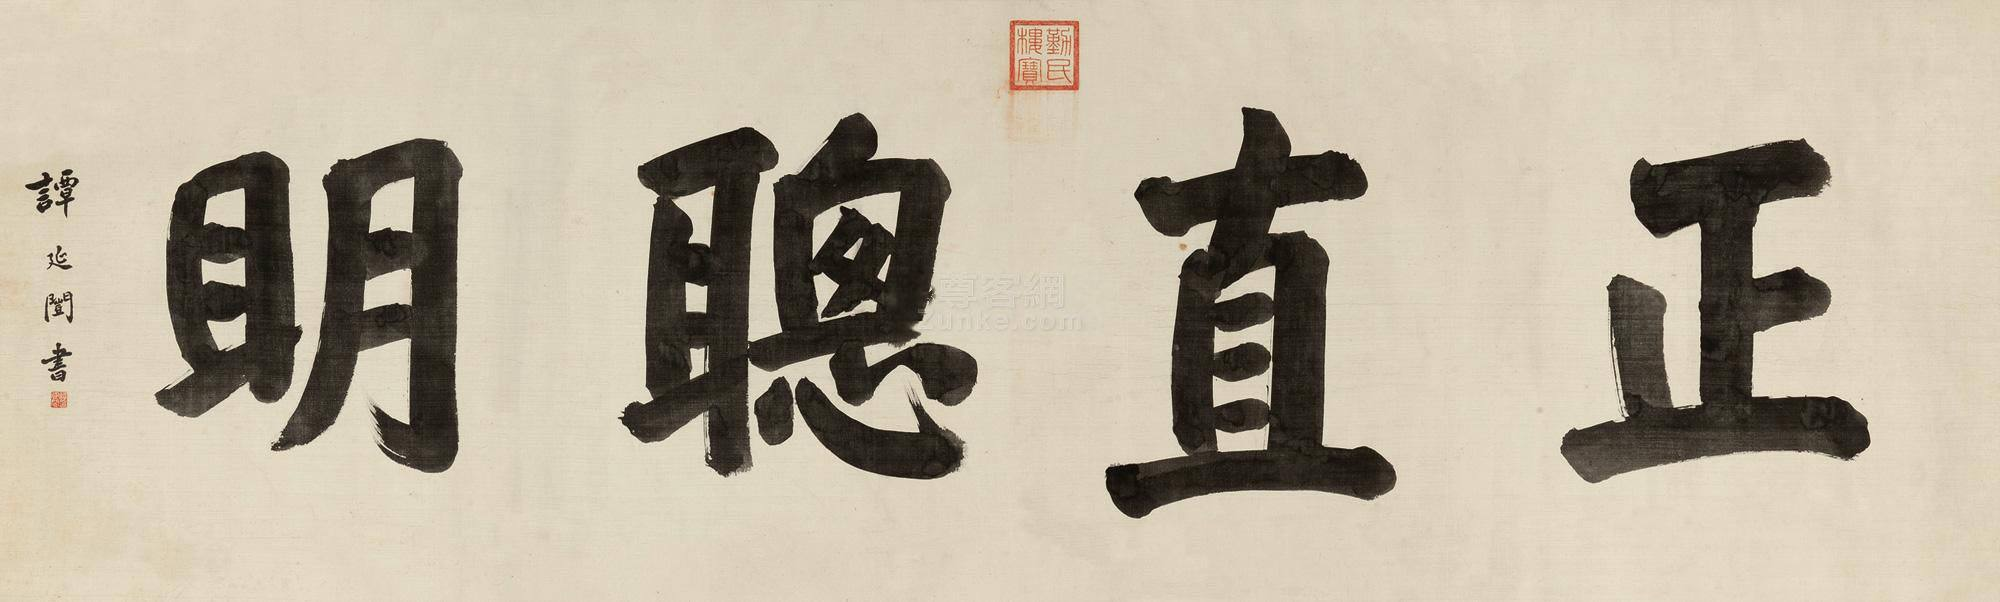 正直聰明
譚延闓書
勤民樓寶
尊客網
Zunke.com